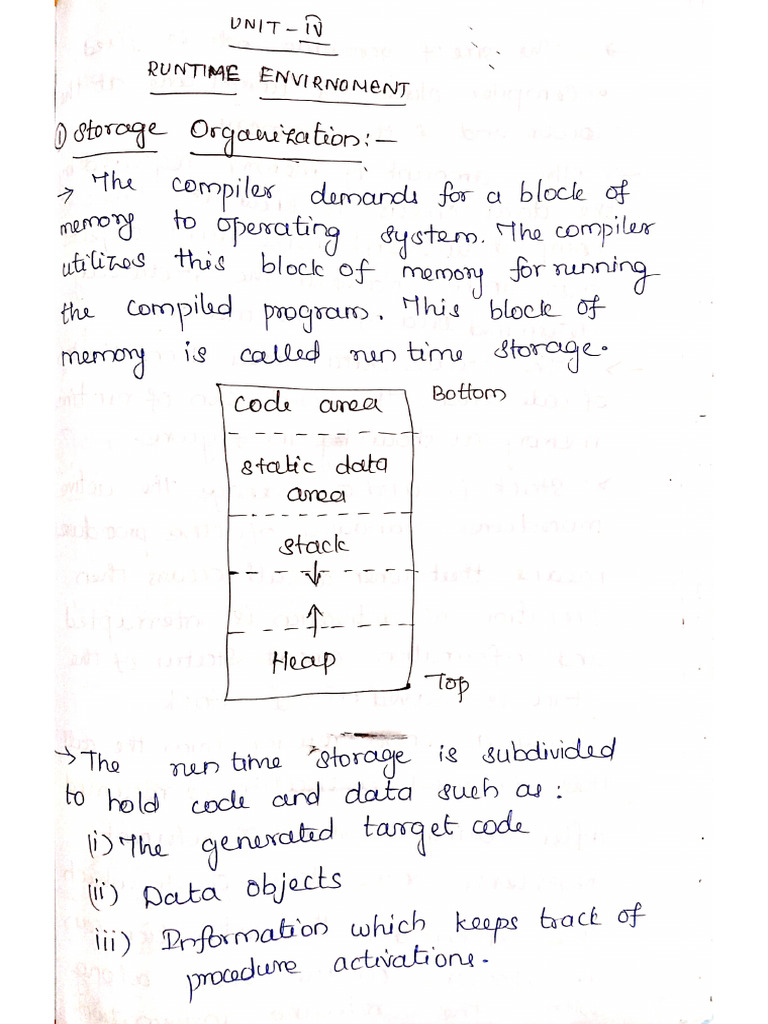 UNIT - IV
RUNTIME ENVIRNOMENT
① Storage Organization:-
→ The compiler demands for a block of
memory to operating system. The compiler
utilizes this block of memory for running
the compiled program. This block of
memory is called run time storage.
code area Bottom
static data
area
stack
↓
↑
Heap
Top
→ The run time storage is subdivided
to hold code and data such as:
(i) The generated target code
(ii) Data objects
iii) Information which keeps track of
procedure activations.